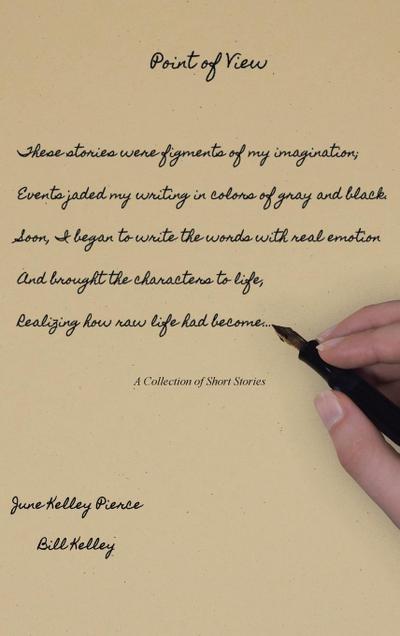 Point of View
These stories were figments of my imagination;
Events jaded my writing in colors of gray and black.
Soon, I began to write the words with real emotion
And brought the characters to life,
Realizing how raw life had become...
A Collection of Short Stories
June Kelley Pierce
Bill Kelley